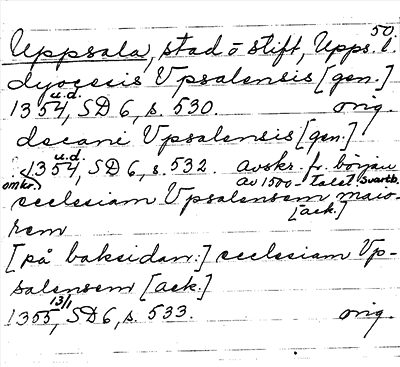 50.
Uppsala, stad o stift, Upps. l.
dyocesis Vpsalensis [gen.]
u.d.
1354, SD 6, s. 530. orig.
decani Vpsalensis [gen.]
u.d.
(omkr.) 1354, SD 6, s. 532. avskr. fr. början
av 1500-talet. Svartb.
ecclesiam Vpsalensem maio-
[ack.]
rem
[på baksidan:] ecclesiam Vp-
salensem [ack.]
13/1
1355, SD 6, s. 533. orig.